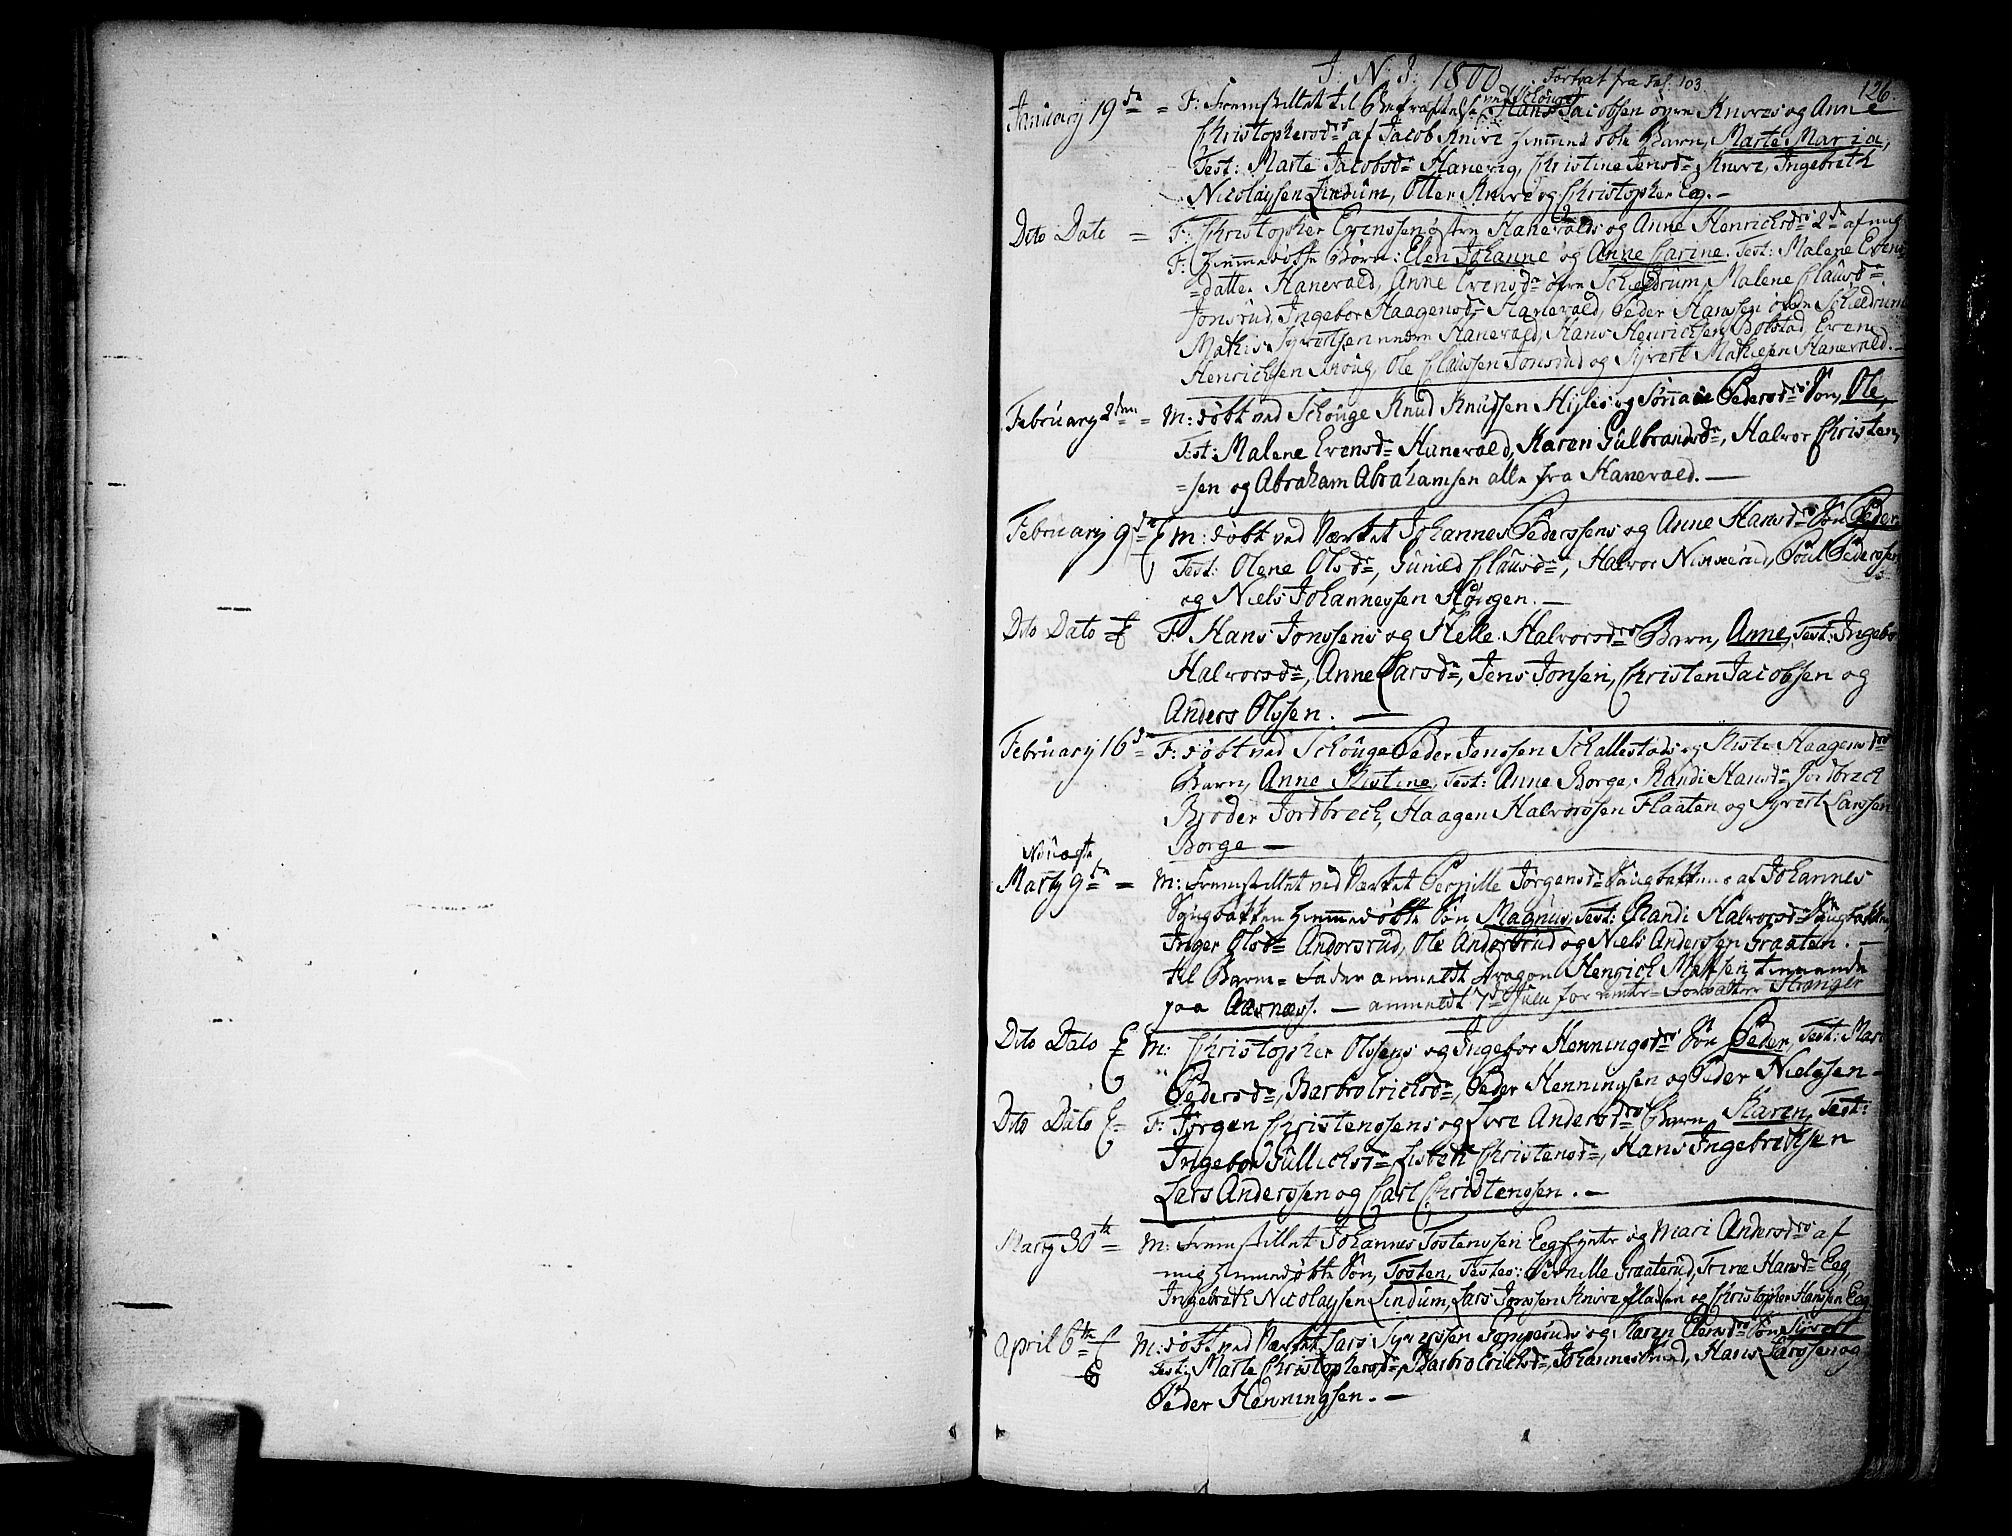 J. N. J. 1800 Fortsat fra Fol. 103 126.
January 19de = F: Fremstillet til Bekræftelse ved Schouge Hans Jacobsen øvre Knives og Anne
Christophersdrs af Jacob Knive hjemmedøbte Barn, Marte Maria,
Test: Marte Jacobsdr Hanevig, Christine Jensdr Knive, Ingebreth
Nicolaysen Lindum, Otter Knive og Christopher Eg. —
Dito Dato = F: Christopher Evenssen østre Hanevalds og Anne Henrichsdrs 2de af mig
F: hjemmedøbte Børn: Elen Johanne og Anne Carine. Test: Malene Evens
=datter Hanevald, Anne Evensdr øvre Schieldrum, Malene Clausdr
Jonsrud, Ingebor Haagensdr Hanevald, Peder Hanssen øvre Schieldrum
Mathis Syvertsen nedre Hanevald, Hans Henrichsen Bolstad, Even
Henrichsen Knoug, Ole Claussen Jonsrud og Syvert Mathiesen Hanevald. —
February 2den = M: døbt ved Schouge Knud Knudsen Hijles og Pedersdrs Søn, Ole,
Test: Malene Evensdr Hanevald, Karen Gulbrandsdr, Halvor Christen,
=sen og Abraham Abrahamsen alle fra Hanevald. —
February 9de M: døbt ved Værket Johannes Pederssens og Anne Hansdrs Søn Peder,
Test: Olene Olsdr, Gunild Clausdr, Halvor, Poul Pederssen
og Niels Johannessen. —
Dito Dato F: Hans Jonssens og Helle Halvorsdrs Barn, Anne, Test: Ingebor
Halvorsdr, Anne Larsdr, Jens Jonsen, Christen Jacobsen og
Anders Olssen. —
February 16de F: døbt ved Schouge Peder Jenssen Schallestads og Kiste Haagensdrs
Barn, Anne Kistine, Test: Anne Borge, Randi Hansdr Jordbrech
Brøder Jordbrech, Haagen Halvorssen Flaaten og Syvert Larssen
Borge —
Nb: uægte
Marty 9de = M: Fremstillet ved Værket Pernille Jørgensdr Haugbakkens af Johannes
Haugbakken hjemmedøbte Søn Magnus, Test: Randi Halvorsdr Haugbakken
Inger Olsdr Andorsrud, Ole Andorsrud og Niels Anderssen Graaten. —
til Barne=Fader anmeldt Dragon Henrich Matsen tienende
paa Aasnæss. — anmeldt 7de July
Dito Dato M: Christopher Olssens og Ingebor Henningsdrs Søn Peder, Test: Mari
Pedersdr, Barbro Erichsdr, Peder Henningsen og Peder Nielsen —
Dito Dato F: Jørgen Christenssens og Live Andersdrs Barn, Karen, Test:
Ingebor Gullichsdr Lisbeth Christensdr, Hans Ingebrethsen
Lars Anderssen og Carl Christenssen. —
Marty 30te = M: Fremstillet Johannes Tostenssen Eeg og Mari Andersdrs af
mig hjemmedøbte Søn, Tosten, Testes: Pernille Graaterud, Trine Hansdr Eeg
Ingebreth Nicolaysen Lindum, Lars Jonssen Knive og Christopher Hanssen Eeg
April 6te M: døbt ved Værket Lars Syverssen og Karen Olensdrs Søn Syvert
Test: Marte Christophersdr, Barbro Erichsdr, Johannes, Hans Larssen og
Peder Henningsen. —